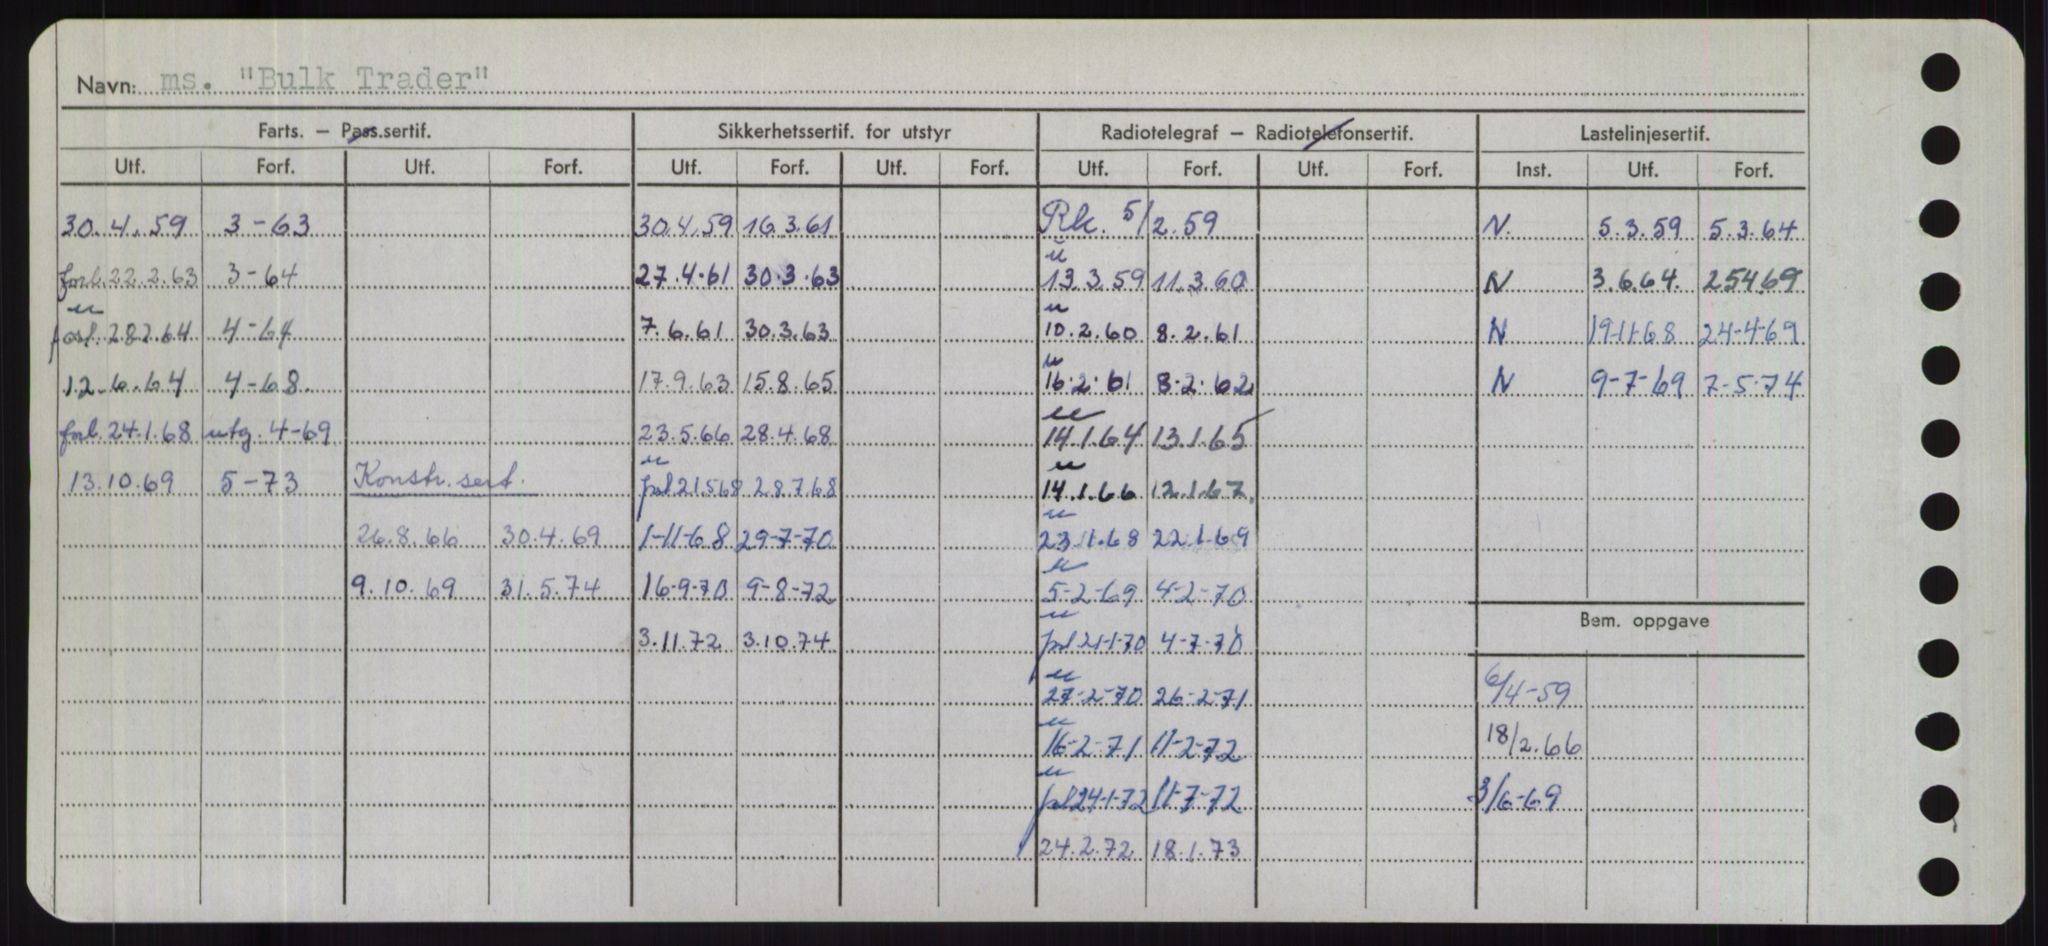 Navn: ms. "Bulk Trader"
Farts. – Pass.sertif. Sikkerhetssertif. for utstyr Radiotelegraf – Radiotelefonsertif. Lastelinjesertif.
Utf. Forf. Utf. Forf. Utf. Forf. Utf. Forf. Utf. Forf. Utf. Forf. Inst. Utf. Forf.
30.4.59 3-63 30.4.59 16.3.61 Rk. 5/2.59 N. 5.3.59 5.3.64
forl. 22.2.63 3-64 27.4.61 30.3.63 13.3.59 11.3.60 N 3.6.64. 25469
" forl. 28264 4-64 7.6.61 30.3.63 " 10.2.60 8.2.61 N 19-11-68 24-4-69
12.6.64 4-68. 17.9.63 15.8.65 " 16.2.61 8.2.62 N 9-7-69 7-5-74
forl. 24.1.68 utg. 4-69 23.5.66 28.4.68 " 14.1.64 13.1.65
13.10.69 5-73 Konstr. sert. " forl 21.568 28.768 " 14.1.66 12.1.67.
26.8.66 30.4.69 1-11-68 29-7-70 " 23.11.68 22.1.69
9.10.69 31.5.74 16-9-70 9-8-72 " 5-2-69 4-2-70
Bem. oppgave
3.11.72 3.10.74 " forl 21-1-70 4-7-70
" 27-2-70 26-2-71 6/4-59
" 16-2-71 11-2-72 18/2.66
" forl 24-1-72 11-7-72 3/6-69
24.2.72 18.1.73